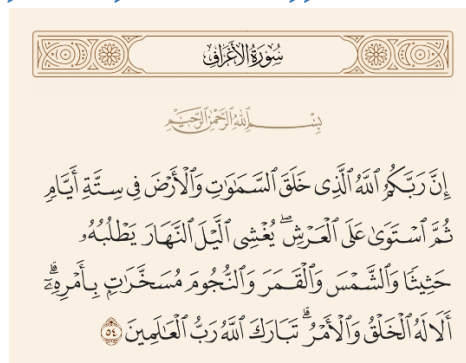 سُورَةُ الأَعْرَافِ
بِسْمِ ٱللَّهِ ٱلرَّحْمَٰنِ ٱلرَّحِيمِ
إِنَّ رَبَّكُمُ ٱللَّهُ ٱلَّذِى خَلَقَ ٱلسَّمَٰوَٰتِ وَٱلْأَرْضَ فِى سِتَّةِ أَيَّامٍ
ثُمَّ ٱسْتَوَىٰ عَلَى ٱلْعَرْشِۖ يُغْشِى ٱلَّيْلَ ٱلنَّهَارَ يَطْلُبُهُۥ
حَثِيثًا وَٱلشَّمْسَ وَٱلْقَمَرَ وَٱلنُّجُومَ مُسَخَّرَٰتٍۭ بِأَمْرِهِۦٓۗ
أَلَا لَهُ ٱلْخَلْقُ وَٱلْأَمْرُۗ تَبَارَكَ ٱللَّهُ رَبُّ ٱلْعَٰلَمِينَ ٥٤